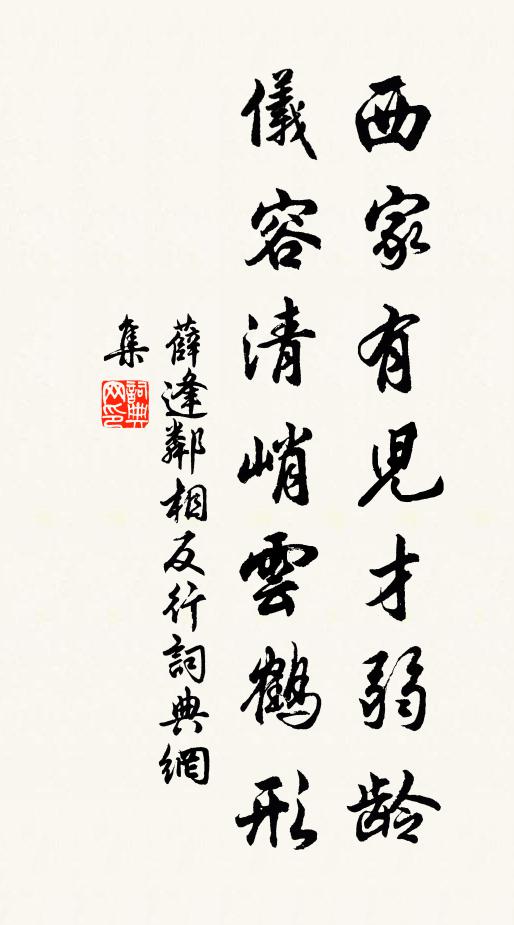 西家有児才弱龄
儀容清峭雲鶴形
薛逢鄰相反行詞典網
集
詞典
网印